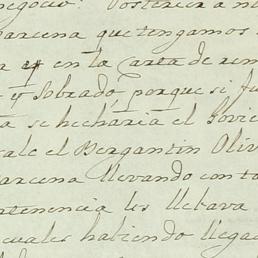 negocio? Posterior a n
arcena que tengamos
a y en la Carta de rem
y Sobrado, porque si fu
a se hecharia el Sovie
cale el Bergantin Oliv
arcena llevando con to
rtenencia les llebava
cuales habiendo llega